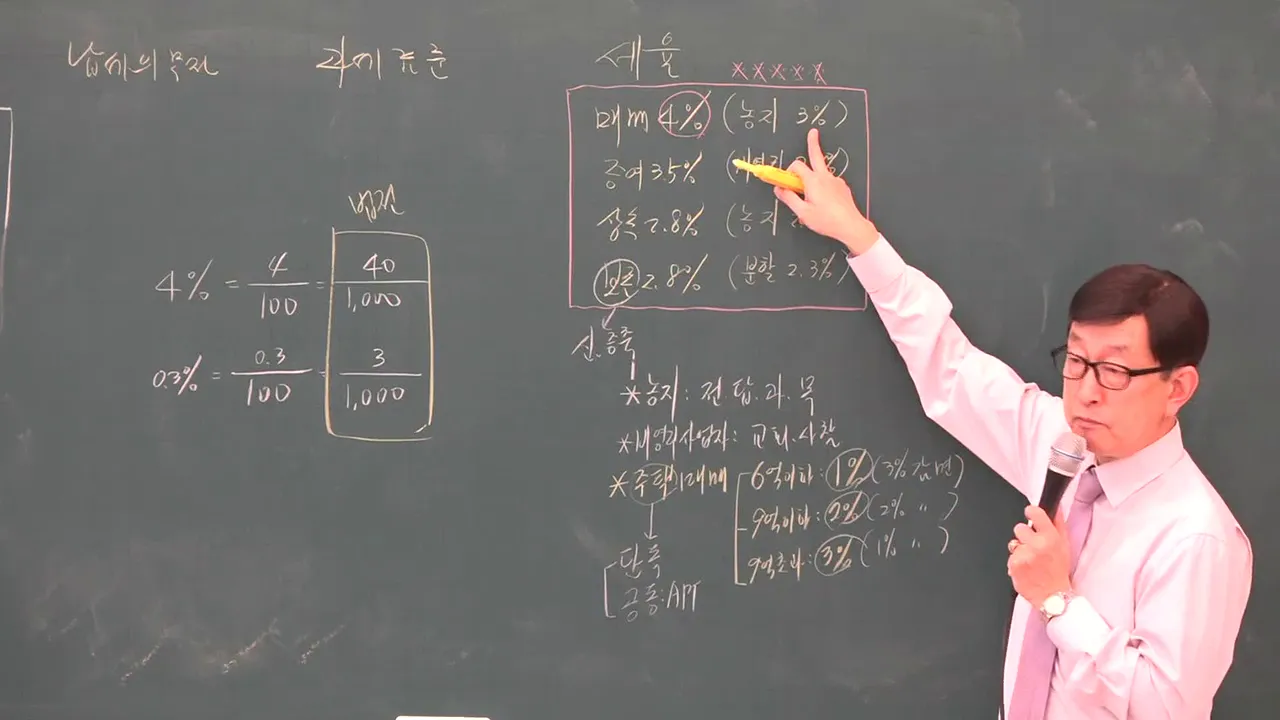 납세의무자
과세표준
세율
×××××
매매 4% (농지 3%)
증여 3.5%
상속 2.8% (농지
보존 2.8% (분할 2.3%)
신.증축
법전
4% = 4/100 = 40/1,000
0.3% = 0.3/100 = 3/1,000
*농지: 전.답.과.목
*비영리사업자: 교회.사찰
*주택매매
6억이하: 1% (3%감면)
9억이하: 2% (2% 〃 )
9억초과: 3% (1% 〃 )
단독
공동:APT